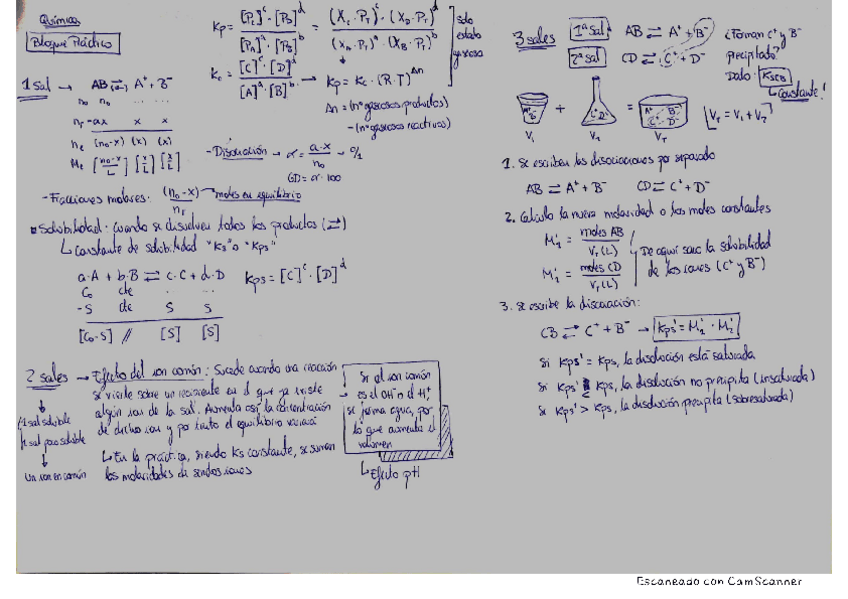 Química
Bloque Práctico
1 sal → AB ⇌ A⁺ + B⁻
n₀ n₀ ... ...
nᵣ -αx x x
nₑ (n₀-x) (x) (x)
Mₑ [n₀-x/L] [x/L] [x/L]
Kp = [Pc]ᶜ·[PD]ᵈ / [PA]ᵃ·[PB]ᵇ = (Xc·PT)ᶜ·(XD·PT)ᵈ / (XA·PT)ᵃ·(XB·PT)ᵇ
solo estado gaseoso
Kc = [C]ᶜ·[D]ᵈ / [A]ᵃ·[B]ᵇ → Kp = Kc·(R·T)^Δn
Δn = (nº gaseosos productos)
-(nº gaseosos reactivos)
-Disociación → α = a·x / n₀ → %
GD = α·100
-Fracciones molares: (n₀-x) / nT → moles en equilibrio
Solubilidad: Cuando se disuelven todos los productos (⇌)
↳ Constante de solubilidad "Ks" o "Kps"
a·A + b·B ⇌ c·C + d·D
C₀ cte ... ...
-S cte S S
[C₀-S] // [S] [S]
Kps = [C]ᶜ·[D]ᵈ
2 sales → Efecto del ion común: Sucede cuando una reacción
se vierte sobre un recipiente en el que ya existe
algún ion de la sal. Aumenta así la concentración
de dicho ion y por tanto el equilibrio variará
1 sal soluble
1 sal poco soluble
Un ion en común
↳ En la práctica, siendo Ks constante, se suman
las molaridades de sendos iones
Si el ion común
es el OH⁻ o el H⁺
se forma agua, por
lo que aumenta el
volumen
↳ Efecto pH
3 sales
1ª sal AB ⇌ A⁺ + B⁻
2ª sal CD ⇌ C⁺ + D⁻
¿Forman C⁺ y B⁻
precipitado?
Dato: KsCB
↳ Constante!
A⁺ B⁻ + C⁺ D⁻ = A⁺ B⁻ C⁺ D⁻
V₁ V₂ VT
VT = V₁ + V₂
1. Se escriben las disociaciones por separado
AB ⇌ A⁺ + B⁻ CD ⇌ C⁺ + D⁻
2. Calculo la nueva molaridad o los moles constantes
M₁' = moles AB / VT(L)
M₂' = moles CD / VT(L)
De aquí saco la solubilidad
de los iones (C⁺ y B⁻)
3. Se escribe la disociación:
CB ⇌ C⁺ + B⁻ → Kps' = M₁'·M₂'
Si Kps' = Kps, la disolución está saturada
Si Kps' < Kps, la disolución no precipita (insaturada)
Si Kps' > Kps, la disolución precipita (sobresaturada)
Escaneado con CamScanner